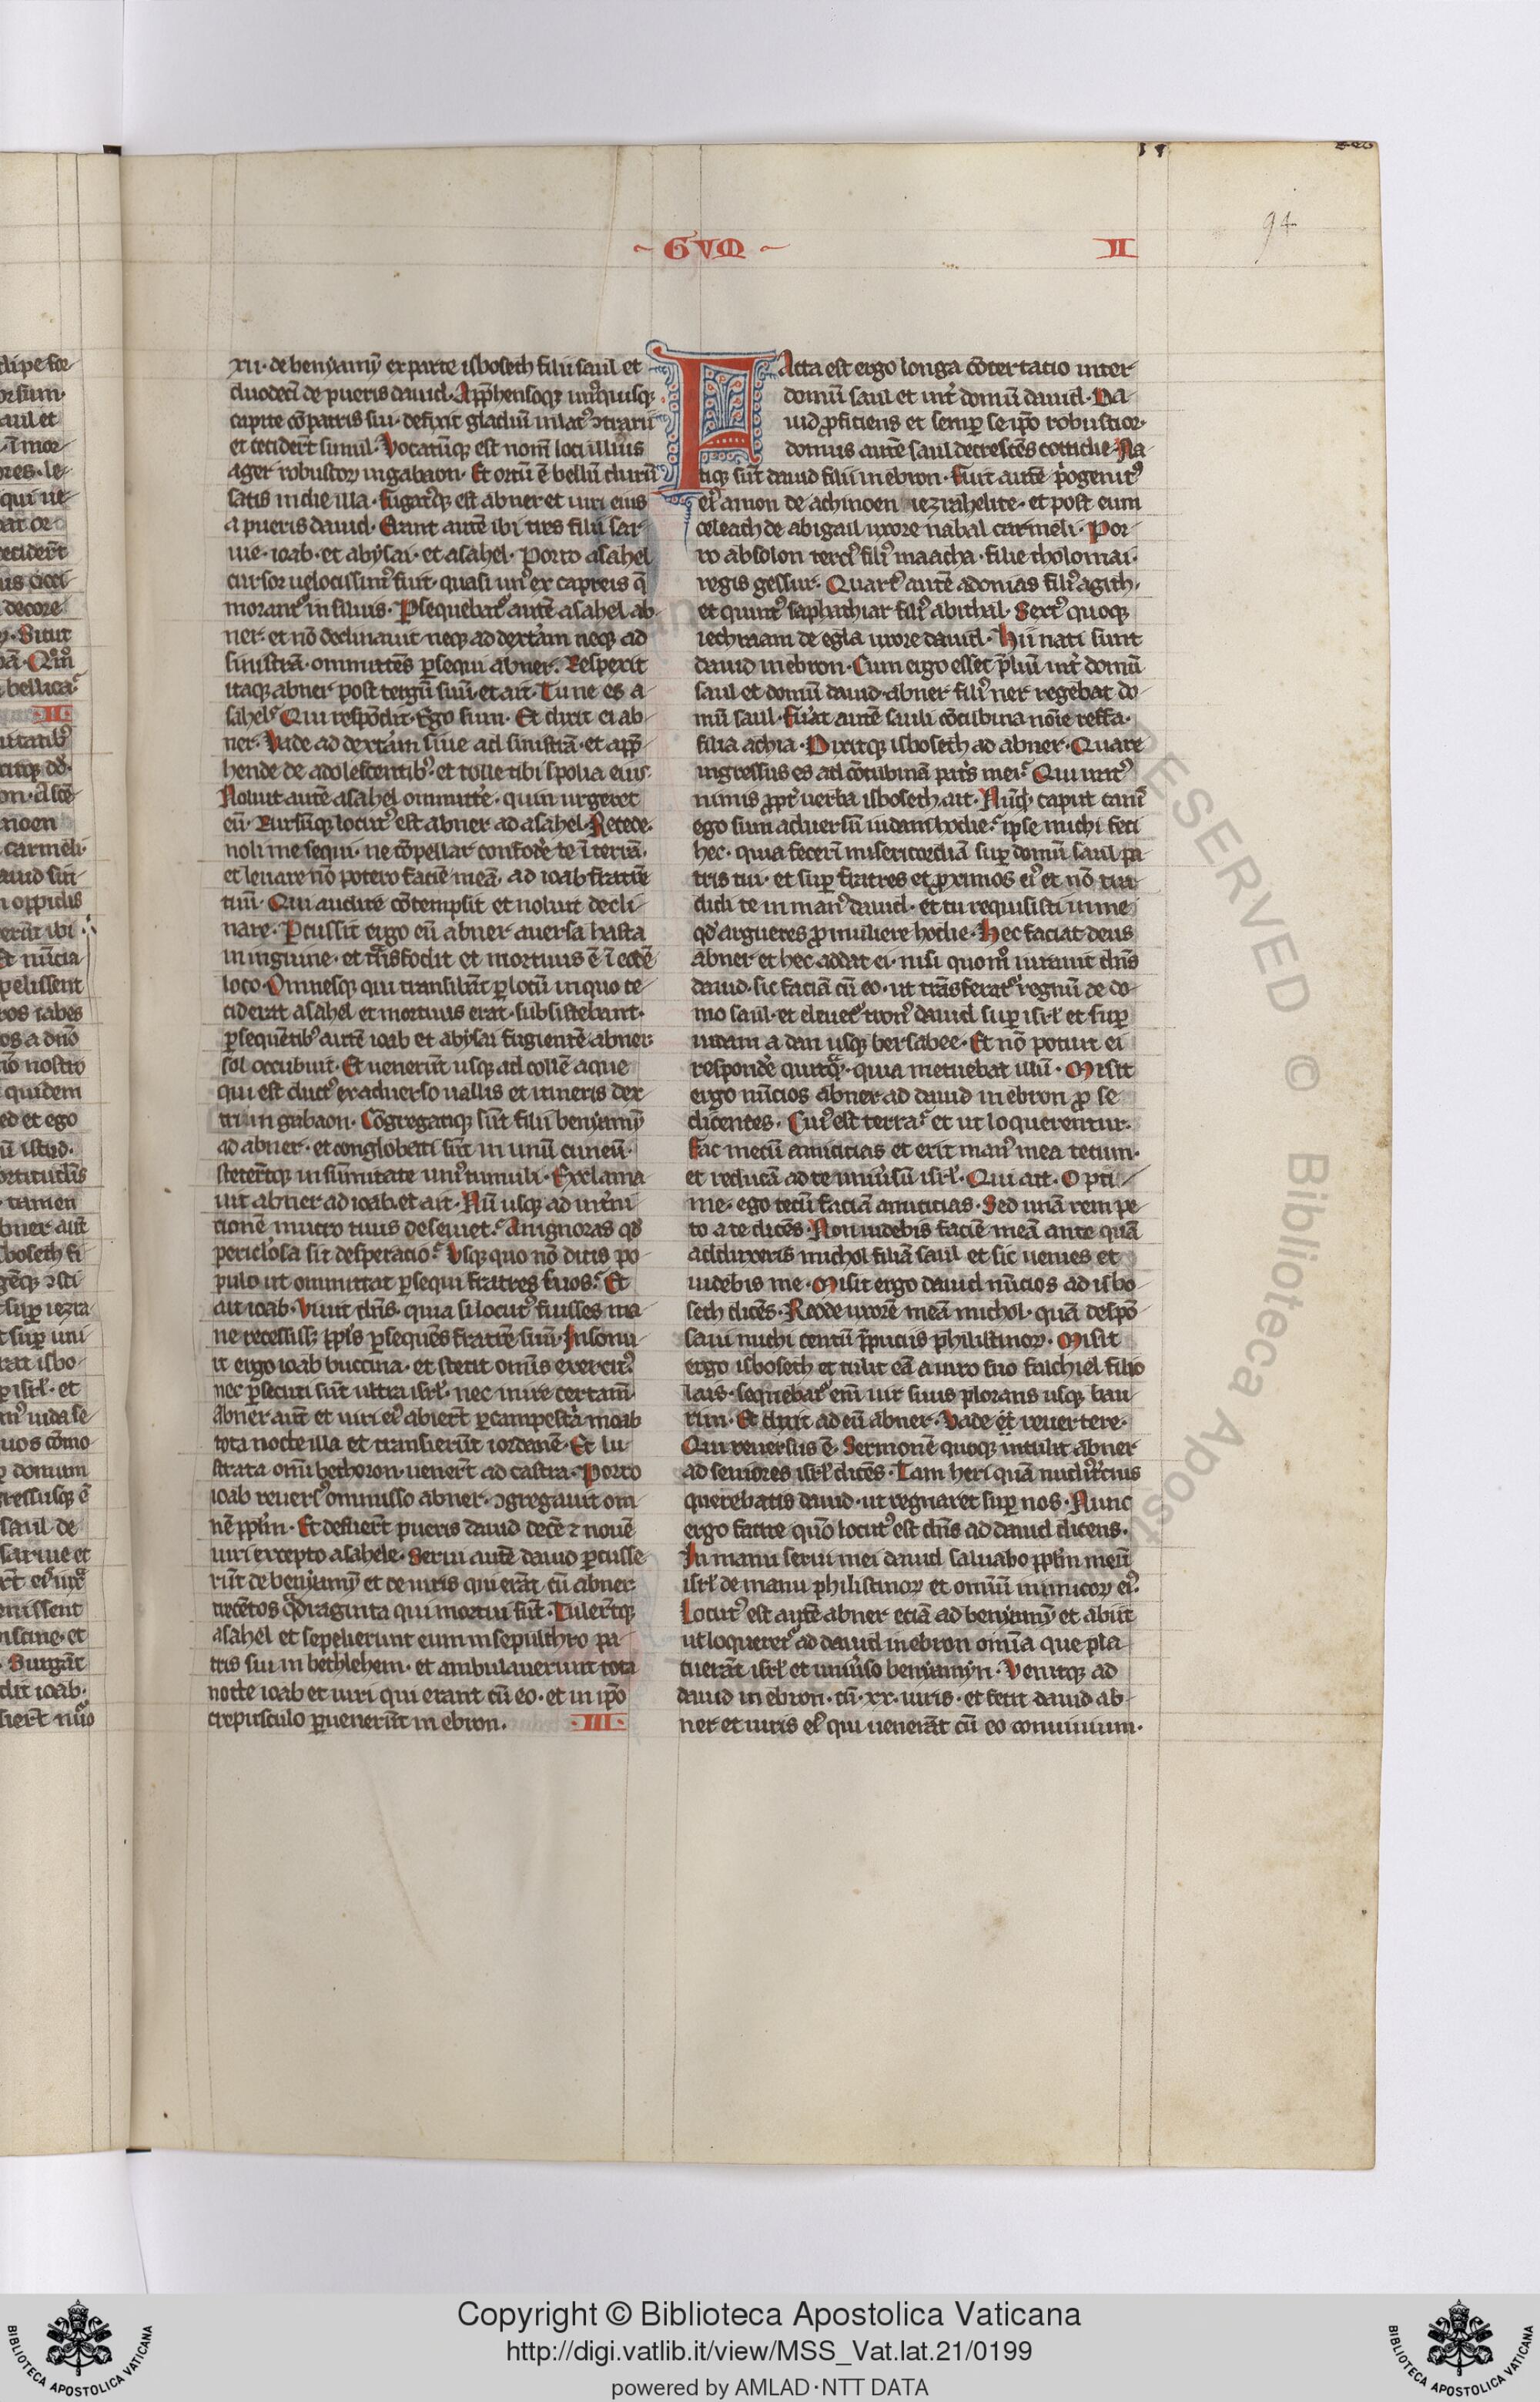 GVM
II
94
xii · de benyamȳ ex parte isboseth filii saul et
duodecī de pueris dauid · Apphensoqꝫ unꝰquisqꝫ
capite cōpatris sui · defixit gladiū in latꝰ ꝯtrarii
et cecider̄t simul · Vocatūqꝫ est nom̄ loci illius
ager robustoꝝ in gabaon · Et ortū ē bellū durū
satis in die illa · fugatꝰqꝫ est abner et uiri eius
a pueris dauid · Erant autē ibi tres filii sar
uie · ioab · et abysai · et asahel · Porro asahel
cursor uelocissimꝰ fuit · quasi unꝰ ex capreis q̄
morantᷣ in siluis · Ꝑsequebatᷣ autē asahel ab
ner et nō declinauit neqꝫ ad dextᷓam neqꝫ ad
sinistrā · omittēs ꝑsequi abner · Respexit
itaqꝫ abner post tergū suū · et ait · Tu ne es a
sahel · Qui respōdit · Ego sum · Et dixit ei ab
ner · Vade ad dextᷓam siue ad sinistrā · et app̄
hende de adolescentibꝰ · et tolle tibi spolia eius
Noluit autē asahel omittēʼ · quin urgeret
eū · Rursūqꝫ locutꝰ est abner ad asahel · Recede ·
noli me sequi · ne cōpellar confodēʼ te ī terrā ·
et leuare nō potero faciē meā · ad ioab fratrē
tuū · Qui audire cōtempsit et noluit decli
nare · Ꝑcussit ergo eū abner auersa hasta
in inguine · et trᷓsfodit et mortuus ē ī eodē
loco · Omnesqꝫ qui transibāt ꝑ locū in quo ce
ciderat asahel et mortuus erat · subsistebant ·
ꝑsequētibꝰ autē ioab et abysai fugientē abner
sol occubuit · Et uenerūt usqꝫ ad collē aque
qui est ductꝰ ex aduerso uallis et itineris der
ti in gabaon · Cōgregatiqꝫ sūt filii benyamȳ
ad abner · et conglobati sūt in unū cuneū ·
steterūtqꝫ in sūmitate unꝰ tumuli · Exclama
uit abner ad ioab · et ait · Nū usqꝫ ad intʼni
tionē mucro tuus deseuiet · An ignoras qd̓
periclosa sit desperatio · Vsqꝫ quo nō dicis po
pulo ut omittat ꝑsequi fratres suos · Et
ait ioab · Viuit dn̄s · quia si locutꝰ fuisses ma
ne recessissꝫ ppl̓s ꝑsequēs fratrē suū · Insonu
it ergo ioab buccina · et stetit omīs exercitꝰ
nec ꝑsecuti sūt ultra isrl̓ · nec iniere certam̄ ·
Abner aūt et uiri eiꝰ abierūt ꝑ campestᷓia moab
tota nocte illa et transierūt iordanē · Et lu
strata omī bethoron · uenerūt ad castra · Porro
ioab reuersꝰ omisso abner · ꝯgregauit om
nē ppl̓m · Et defuerūt pueris dauid decē ⁊ nouē
uiri excepto asahele · Serui autē dauid ꝑcusse
rūt de benyamȳ et de uiris qui erāt cū abner
trecētos qᷓdraginta qui mortui sūt · Tulerūtqꝫ
asahel et sepelierunt eum in sepulchro pa
tris sui in bethlehem · et ambulauerunt tota
nocte ioab et uiri qui erant cū eo · et in ip̄o
crepusculo ꝑuenerūt in ebron · III ·
FActa est ergo longa cōcertatio inter
domū saul et intʼ domū dauid · Da
uid ꝓficiens et semꝑ seip̄o robustior ·
domus autē saul decrescēs cottidie · Na
tiqꝫ sūt dauid filii in ebron · Fuit autē pʼogenitꝰ
eiꝰ amon de achinoen iezrahelite · et post eum
celeach de abigail uxore nabal carmeli · Por
ro absolon tercꝰ filiꝰ maacha · filie tholomai ·
regis gessur · Quartꝰ autē adonias filiꝰ agith ·
et quintꝰ saphathiar filiꝰ abithal · Sextꝰ quoqꝫ
iethraam de egla uxore dauid · Hii nati sunt
dauid in ebron · Cum ergo esset p̄liū intʼ domū
saul et domū dauid · abner filiꝰ ner regebat do
mū saul · Fuᷓat autē sauli cōcubina noīe resfa ·
filia achia · Dixitqꝫ isboseth ad abner · Quare
ingressus es ad cōcubinā patʼs mei · Qui iratꝰ
nimis ꝓptʼ uerba isboseth · ait · Nūqd̓ · caput canī
ego sum aduersū iudam hodie · ipse michi feci
hec · quia fecerī misericordiā suꝑ domū saul pa
tris tui · et suꝑ fratres et ꝓximos eiꝰ et nō tra
didi te in manꝰ dauid · et tu requisisti in me
qd̓ argueres ꝓ muliere hodie · Hec faciat deus
abner et hec addat ei · nisi quom̊ iurauit dn̄s
dauid · sic faciā cū eo · ut trāsferatᷣ regnū de do
mo saul · et eleuetᷣ tronꝰ dauid suꝑ isrl̓ et suꝑ
iudam a dan usqꝫ bersabee · Et nō potuit ei
respondēʼ quicqᷓ · quia metuebat illū · Misit
ergo nūcios abner ad dauid in ebron ꝓ se
dicentes · Cuiꝰ est terra · et ut loquerentur ·
Fac mecū amicitias et erit manꝰ mea tecum ·
et reducā ad te uniuʼsū isrl̓ · Qui ait · Opti
me · ego tecū faciā amicitias · Sed unā rem pe
to a te dicēs · Non uidebis faciē meā ante quā
adduxeris michol filiā saul et sic uenies et
uidebis me · Misit ergo dauid nūcios ad isbo
seth dicēs · Redde uxorē meā michol · quā despō
saui michi centū p̄puciis philistinoꝝ · Misit
ergo isboseth et tulit eā a uiro suo falchiel filio
lais · sequebatᷣ em̄ uir suus plorans usqꝫ bau
rim · Et dixit ad eū abner · Vade et reuertere ·
Qui reuersus ē · Sermonē quoqꝫ intulit abner
ad seniores isrl̓ dicēs · Tam heri quā nudiᷤtʼcius
querebatis dauid · ut regnaret suꝑ nos · Nunc
ergo facite quō locutꝰ est dn̄s ad dauid dicens ·
In manu serui mei dauid saluabo ppl̓m meū
isrl̓ de manu philistinoꝝ et omīū inimicoꝝ eiꝰ
Locutꝰ est autē abner eciā ad benyamȳ et abiit
ut loqueretᷣ ad dauid in ebron omīa que pla
cuerāt isrl̓ et uniuʼso benyamyn · Venitqꝫ ad
dauid in ebron · cū · xx · uiris · et fecit dauid ab
ner et uiris eiꝰ qui uenerāt cū eo conuiuium ·
RESERVED © Biblioteca Apost
Copyright © Biblioteca Apostolica Vaticana
http://digi.vatlib.it/view/MSS_Vat.lat.21/0199
powered by AMLAD·NTT DATA
BIBLIOTECA APOSTOLICA VATICANA
BIBLIOTECA APOSTOLICA VATICANA